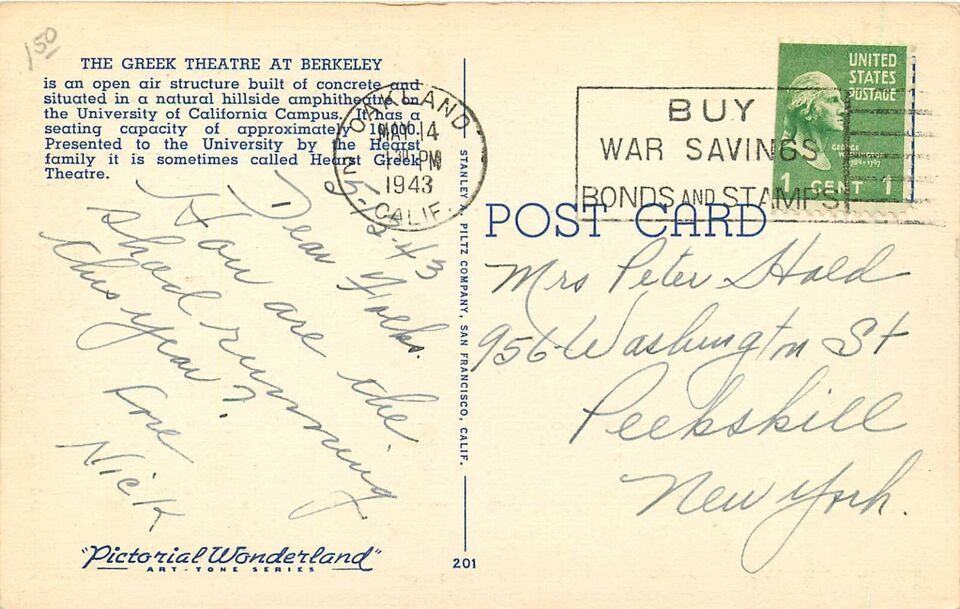 1.50
THE GREEK THEATRE AT BERKELEY
is an open air structure built of concrete and
situated in a natural hillside amphitheatre on
the University of California Campus. It has a
seating capacity of approximately 10,000.
Presented to the University by the Hearst
family it is sometimes called Hearst Greek
Theatre.
OAKLAND
MAY 14
1:30 PM
1943
CALIF.
BUY
WAR SAVINGS
BONDS AND STAMPS
UNITED
STATES
POSTAGE
GEORGE
WASHINGTON
1789-1797
1 CENT 1
POST CARD
5-13-43
Dear Folks.
How are the
shad running
this year?
Love
Nick
Mrs Peter Hold
956 Washington St
Peekskill
New York.
STANLEY A. PILTZ COMPANY, SAN FRANCISCO, CALIF.
"Pictorial Wonderland"
ART-TONE SERIES
201